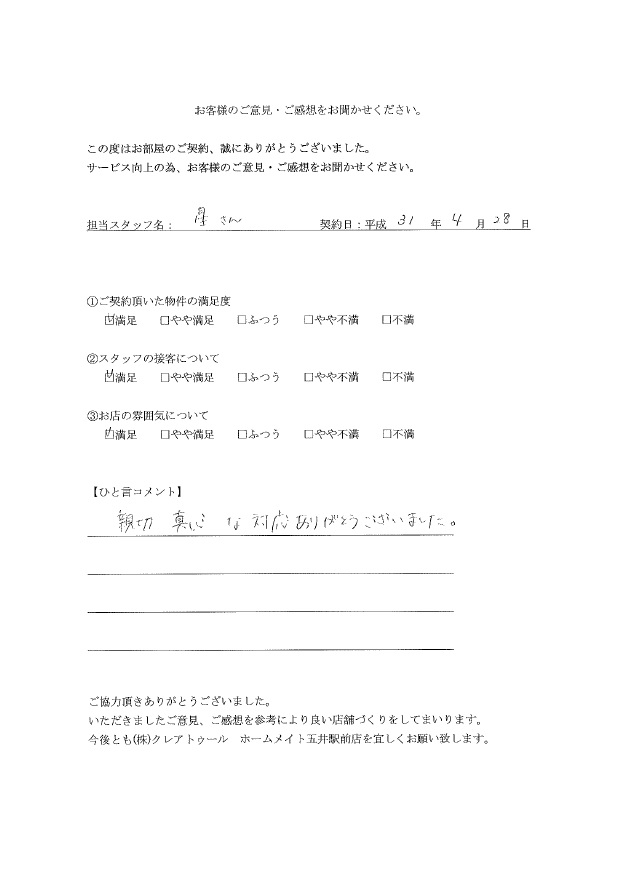 お客様のご意見・ご感想をお聞かせください。
この度はお部屋のご契約、誠にありがとうございました。
サービス向上の為、お客様のご意見・ご感想をお聞かせください。
担当スタッフ名： さん 契約日：平成 31 年 4 月 28 日
①ご契約頂いた物件の満足度
☑満足 □やや満足 □ふつう □やや不満 □不満
②スタッフの接客について
☑満足 □やや満足 □ふつう □やや不満 □不満
③お店の雰囲気について
☑満足 □やや満足 □ふつう □やや不満 □不満
【ひと言コメント】
親切 真心 な 対応ありがとうございました。
ご協力頂きありがとうございました。
いただきましたご意見、ご感想を参考により良い店舗づくりをしてまいります。
今後とも(株)クレアトゥール　ホームメイト五井駅前店を宜しくお願い致します。